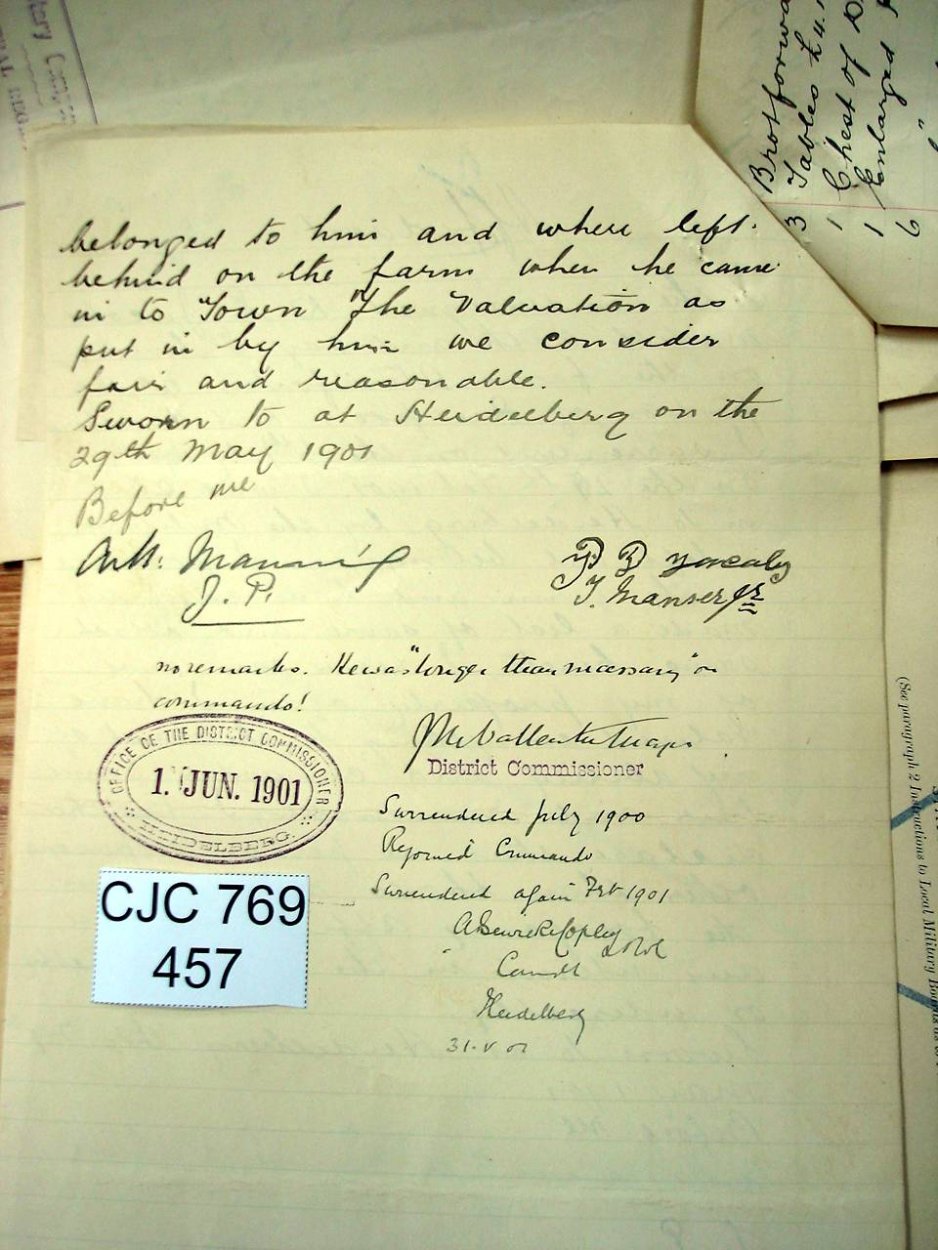 belonged to him and where left.
behind on the farm when he came
in to Town The Valuation as
put in by him we consider
fair and reasonable.
Sworn to at Heidelberg on the
29th May 1901
Before me
Manning
J. P.
J. Manser jr
no remarks. He was "longer than necessary" on
commando!
District Commissioner
OFFICE OF THE DISTRICT COMMISSIONER
1. JUN. 1901
HEIDELBERG.
Surrendered July 1900
Rejoined Commando
Surrendered again Feb 1901
Copley
Comdt
Heidelberg
31.V.01
CJC 769
457
Brotforwa
3 Tables £4.
1 Chest of D
1 Enlarged
9 "
(See paragraph 2 Instructions to Local Military Boards as to